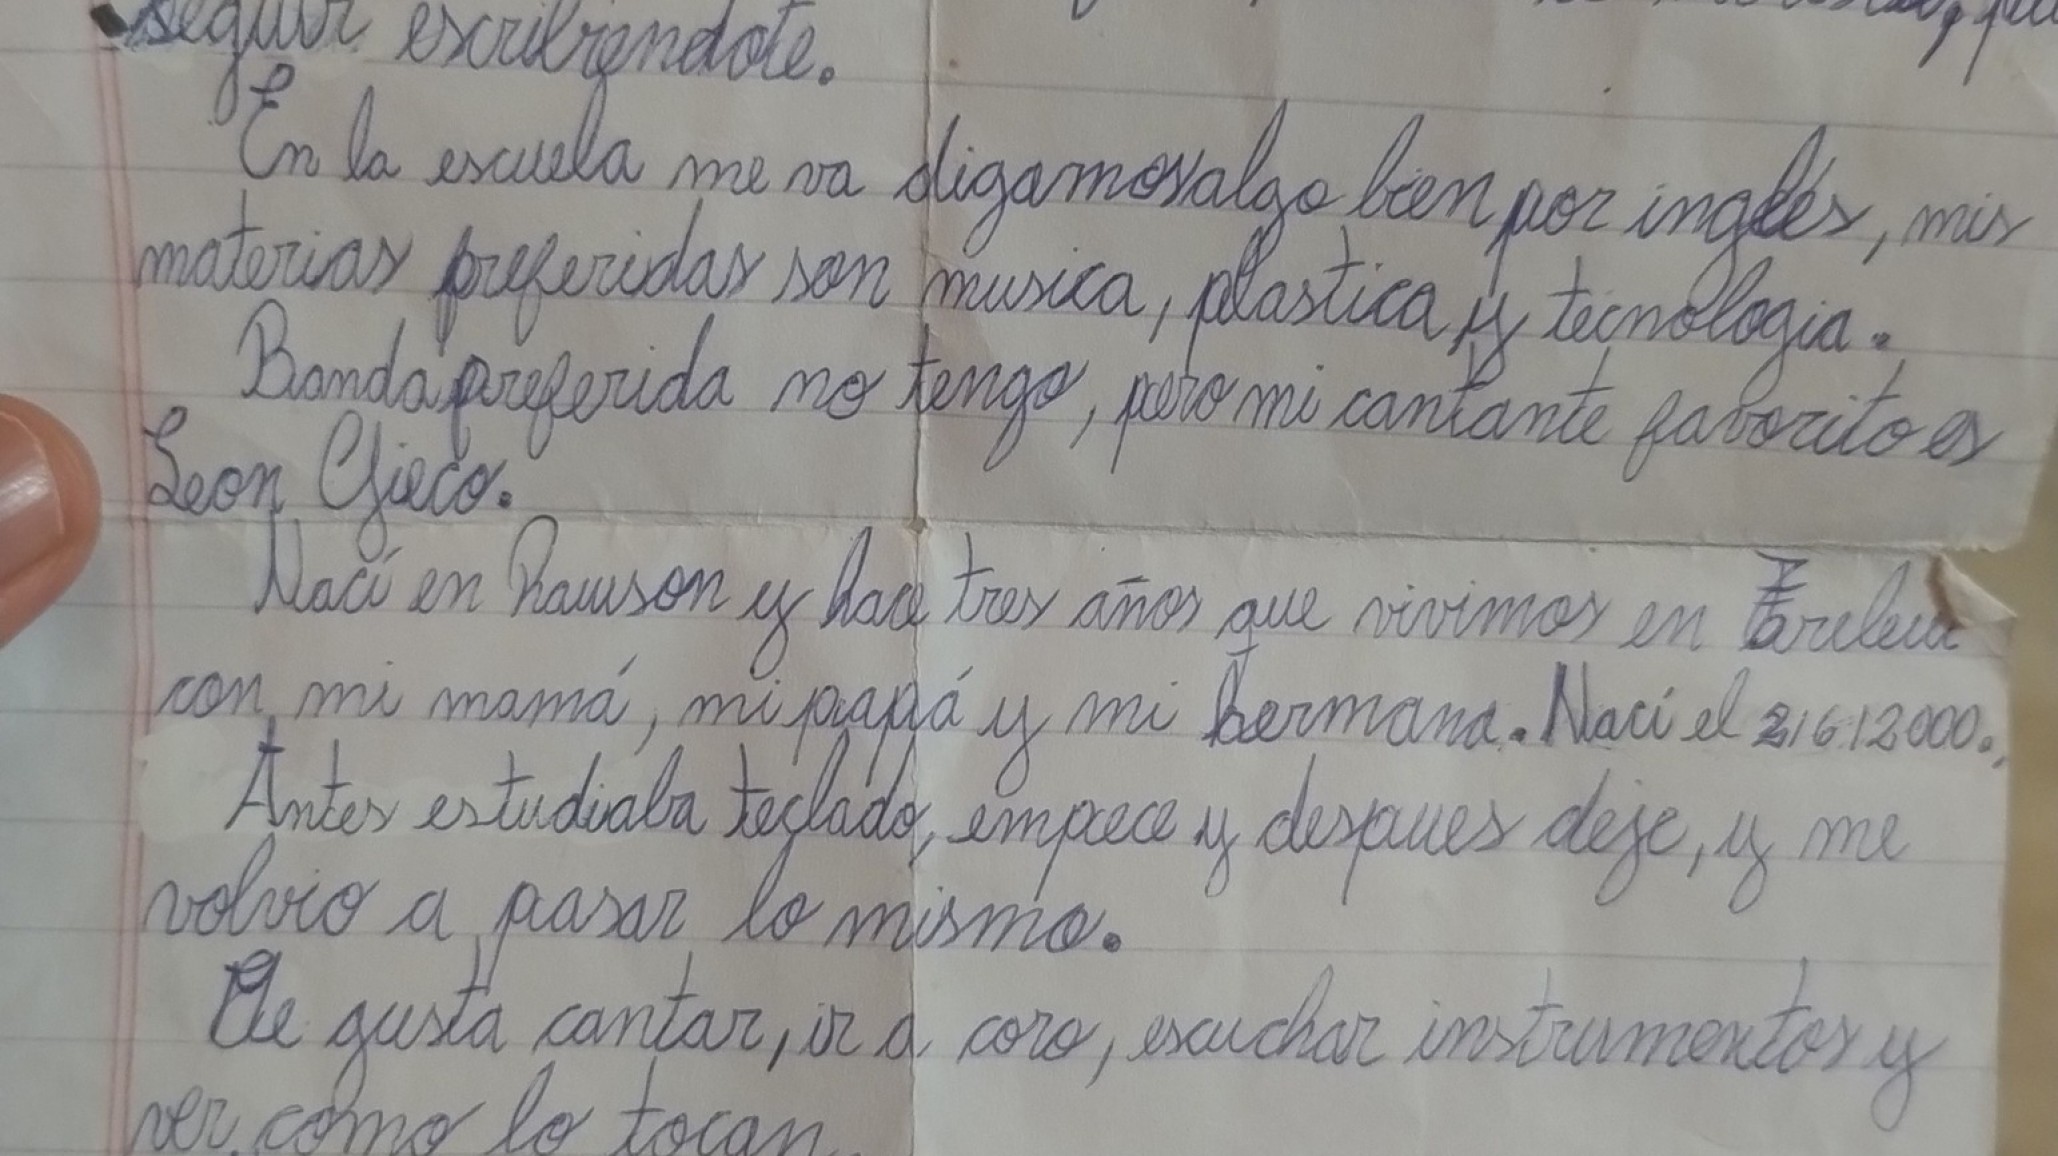 seguir escribiendote.
En la escuela me va digamos algo bien por inglés, mis
materias preferidas son musica, plastica y tecnologia.
Banda preferida no tengo, pero mi cantante favorito es
Leon Gieco.
Nací en Rawson y hace tres años que vivimos en Trelew
con mi mamá, mi papá y mi hermana. Nací el 2/6/2000.
Antes estudiaba teclado, empece y despues deje, y me
volvio a pasar lo mismo.
Me gusta cantar, ir a coro, escuchar instrumentos y
ver como lo tocan.